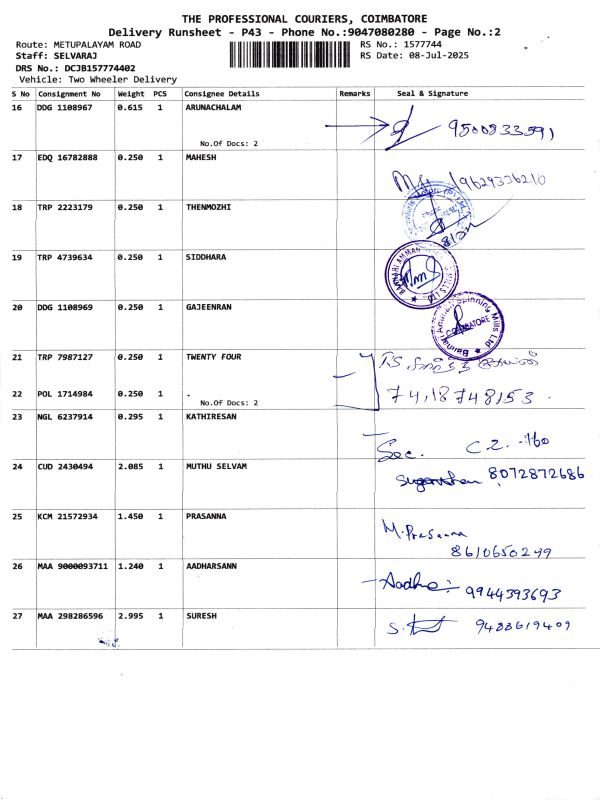 THE PROFESSIONAL COURIERS, COIMBATORE
Delivery Runsheet - P43 - Phone No.:9047080280 - Page No.:2
Route: METUPALAYAM ROAD RS No.: 1577744
Staff: SELVARAJ RS Date: 08-Jul-2025
DRS No.: DCJB157774402
Vehicle: Two Wheeler Delivery
S No Consignment No Weight PCS Consignee Details Remarks Seal & Signature
16 DDG 1108967 0.615 1 ARUNACHALAM
9500833591
No.Of Docs: 2
17 EDQ 16782888 0.250 1 MAHESH
9629336210
18 TRP 2223179 0.250 1 THENMOZHI
19 TRP 4739634 0.250 1 SIDDHARA
20 DDG 1108969 0.250 1 GAJEENRAN
Bannari Amman Spinning Mills Ltd
COIMBATORE
21 TRP 7987127 0.250 1 TWENTY FOUR
22 POL 1714984 0.250 1 .
7418748153
No.Of Docs: 2
23 NGL 6237914 0.295 1 KATHIRESAN
Sec.
24 CUD 2430494 2.085 1 MUTHU SELVAM
8072872686
25 KCM 21572934 1.450 1 PRASANNA
M.Prasanna
8610650299
26 MAA 9000093711 1.240 1 AADHARSANN
Aadhe 9944393693
27 MAA 298286596 2.995 1 SURESH
9488619409